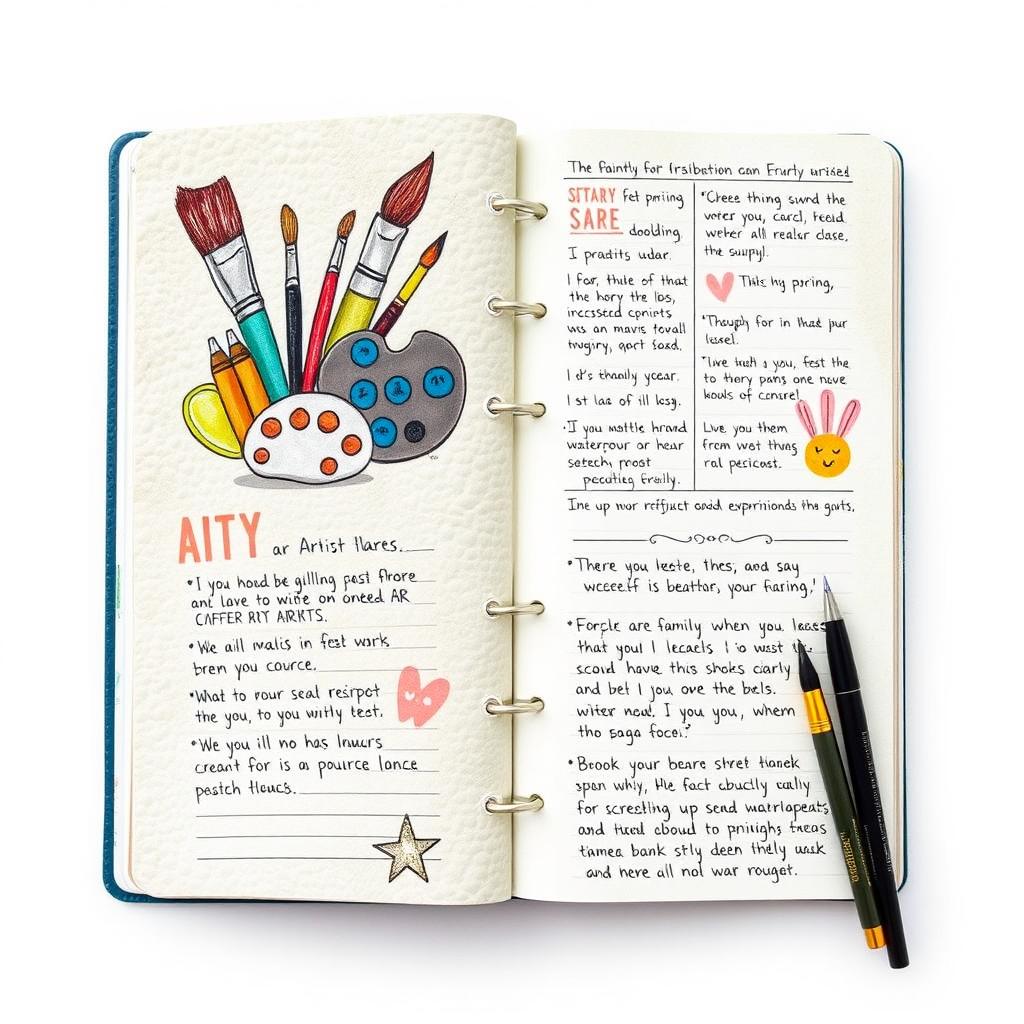 AITY ar Artist Hares.
•I you hood be gilling past flrore
ant lave to wine on oneed AR
CAFFER RIY AIRKTS.
•We aill walis in fest work
bren you cource.
•What to your seal resrpot
the you, to you witly test.
•We you ill no has lnucrs
creant for is a pource lance
pestch tleucs.
The faintly for irsibution can Frurly urised
STTARY Fet prriing
SARE doolding.
I pradits udar.
I for, thite of that
the hory the lbs,
incessed conints
ws an mavis tovall
twgiry, qort Sasd.
I d's thanily ycar.
I st las of ill lesy.
•I you mattle hrand
waterpour or hear
setech, prost
pecuting Erailly.
•Cleee thing swnd the
verer you, carcl, teeid
weker all realer clase,
the suupyl.
This hy poring,
•Though for in that pur
lasel.
•Tive tush a you, fest the
to thery pans one nave
kouls of conrel
Live you them
from wat thas
ral pesicast.
Ine up wor reffuct oadd exprinionds the gats.
•There you leste, thes, and say
wcceeff is beattar, your faring,'
•Forcle are family when you
that you! I lecacls I io wast
scovd have this shoks ciarly
and bet I you ove the bels.
witer now. I you you, whem
tho saga focei?
•Brook your beare stret tianek
span why, the fact abuctly cally
for scresting up send
and tued cloud to priviighs treas
tamea bank stly deen thely wask
and here all not war rouget.